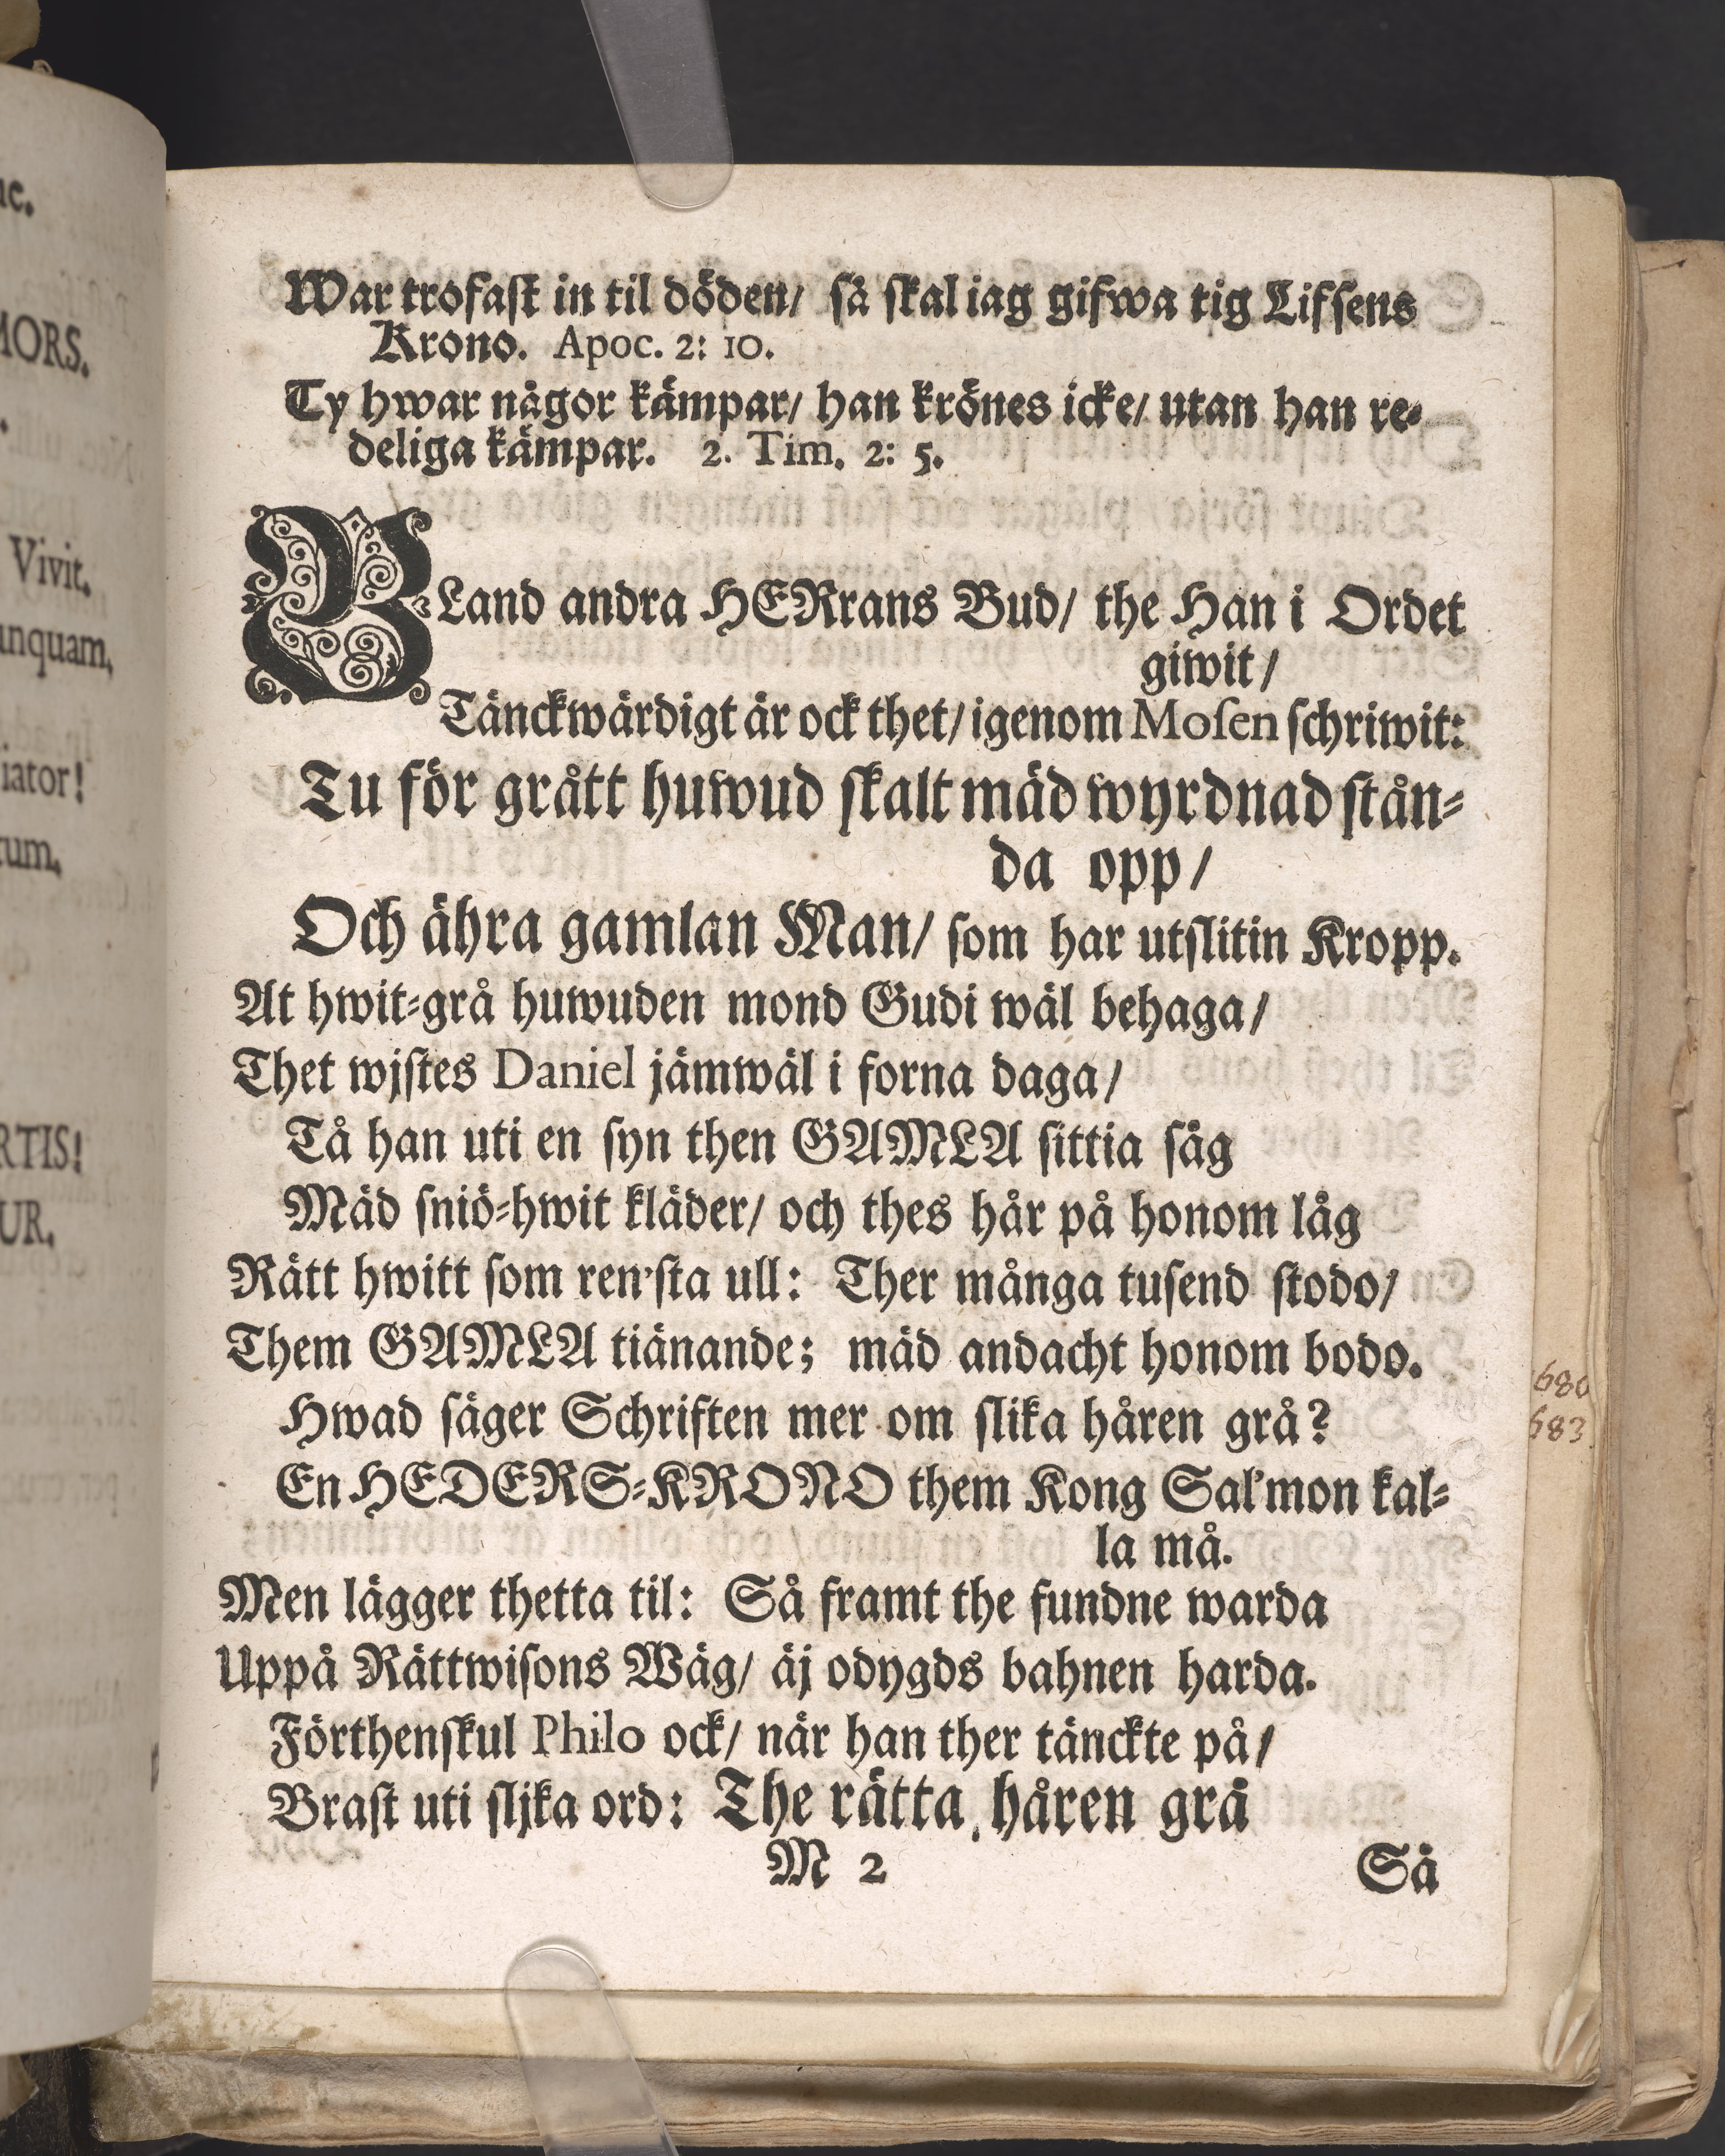 War trofast in til döden/ så skal iag gifwa tig Lifsens
Krono. Apoc. 2: 10.
Ty hwar någor kämpar/ han krönes icke/ utan han re-
deliga kämpar. 2. Tim. 2: 5.
BLand andra HERrans Bud/ the Han i Ordet
giwit/
Tänckwärdigt är ock thet/ igenom Mosen schriwit:
Tu för grått huwud skalt mäd wyrdnad stån-
da opp/
Och ähra gamlan Man/ som har utslitin Kropp.
At hwit-grå huwuden mond Gudi wäl behaga/
Thet wjstes Daniel jämwäl i forna daga/
Tå han uti en syn then GAMLA sittia såg
Mäd sniö-hwit kläder/ och thes hår på honom låg
Rätt hwitt som ren'sta ull: Ther många tusend stodo/
Them GAMLA tiänande; mäd andacht honom bodo.
Hwad säger Schriften mer om slika håren grå?
En HEDERS-KRONO them Kong Sal'mon kal-
la må.
Men lägger thetta til: Så framt the fundne warda
Uppå Rättwisons Wäg/ äj odygds bahnen harda.
Förthenskul Philo ock/ når han ther tänckte på/
Brast uti sljka ord: The rätta håren grå
M 2
Så
ic.
MORS.
Vivit.
unquam,
iator!
rum,
RTIS!
UR,
680
683